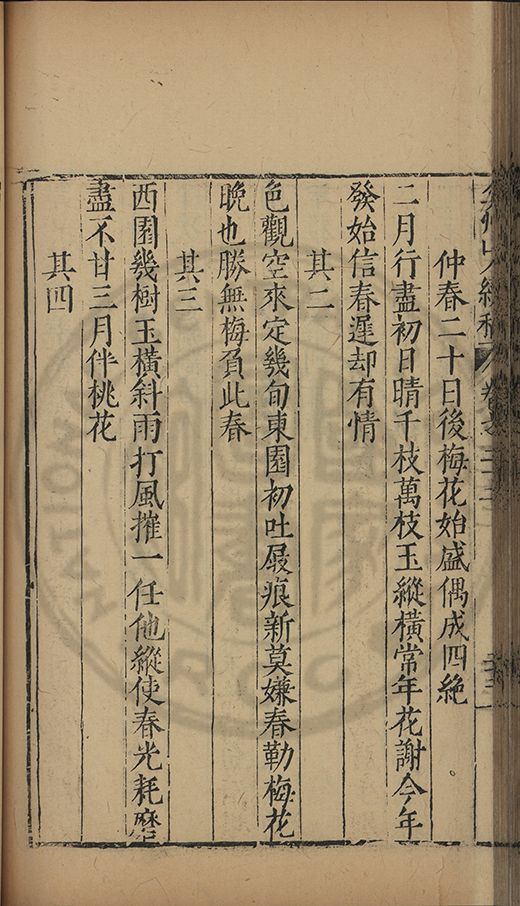 仲春二十日後梅花始盛偶成四絶
二月行盡初日晴千枝萬枝玉縱橫常年花謝今年
發始信春遲却有情
其二
色觀空來定幾旬東園初吐屐痕新莫嫌春勒梅花
晚也勝無梅負此春
其三
西園幾樹玉橫斜雨打風摧一任他縱使春光耗磨
盡不甘三月伴桃花
其四